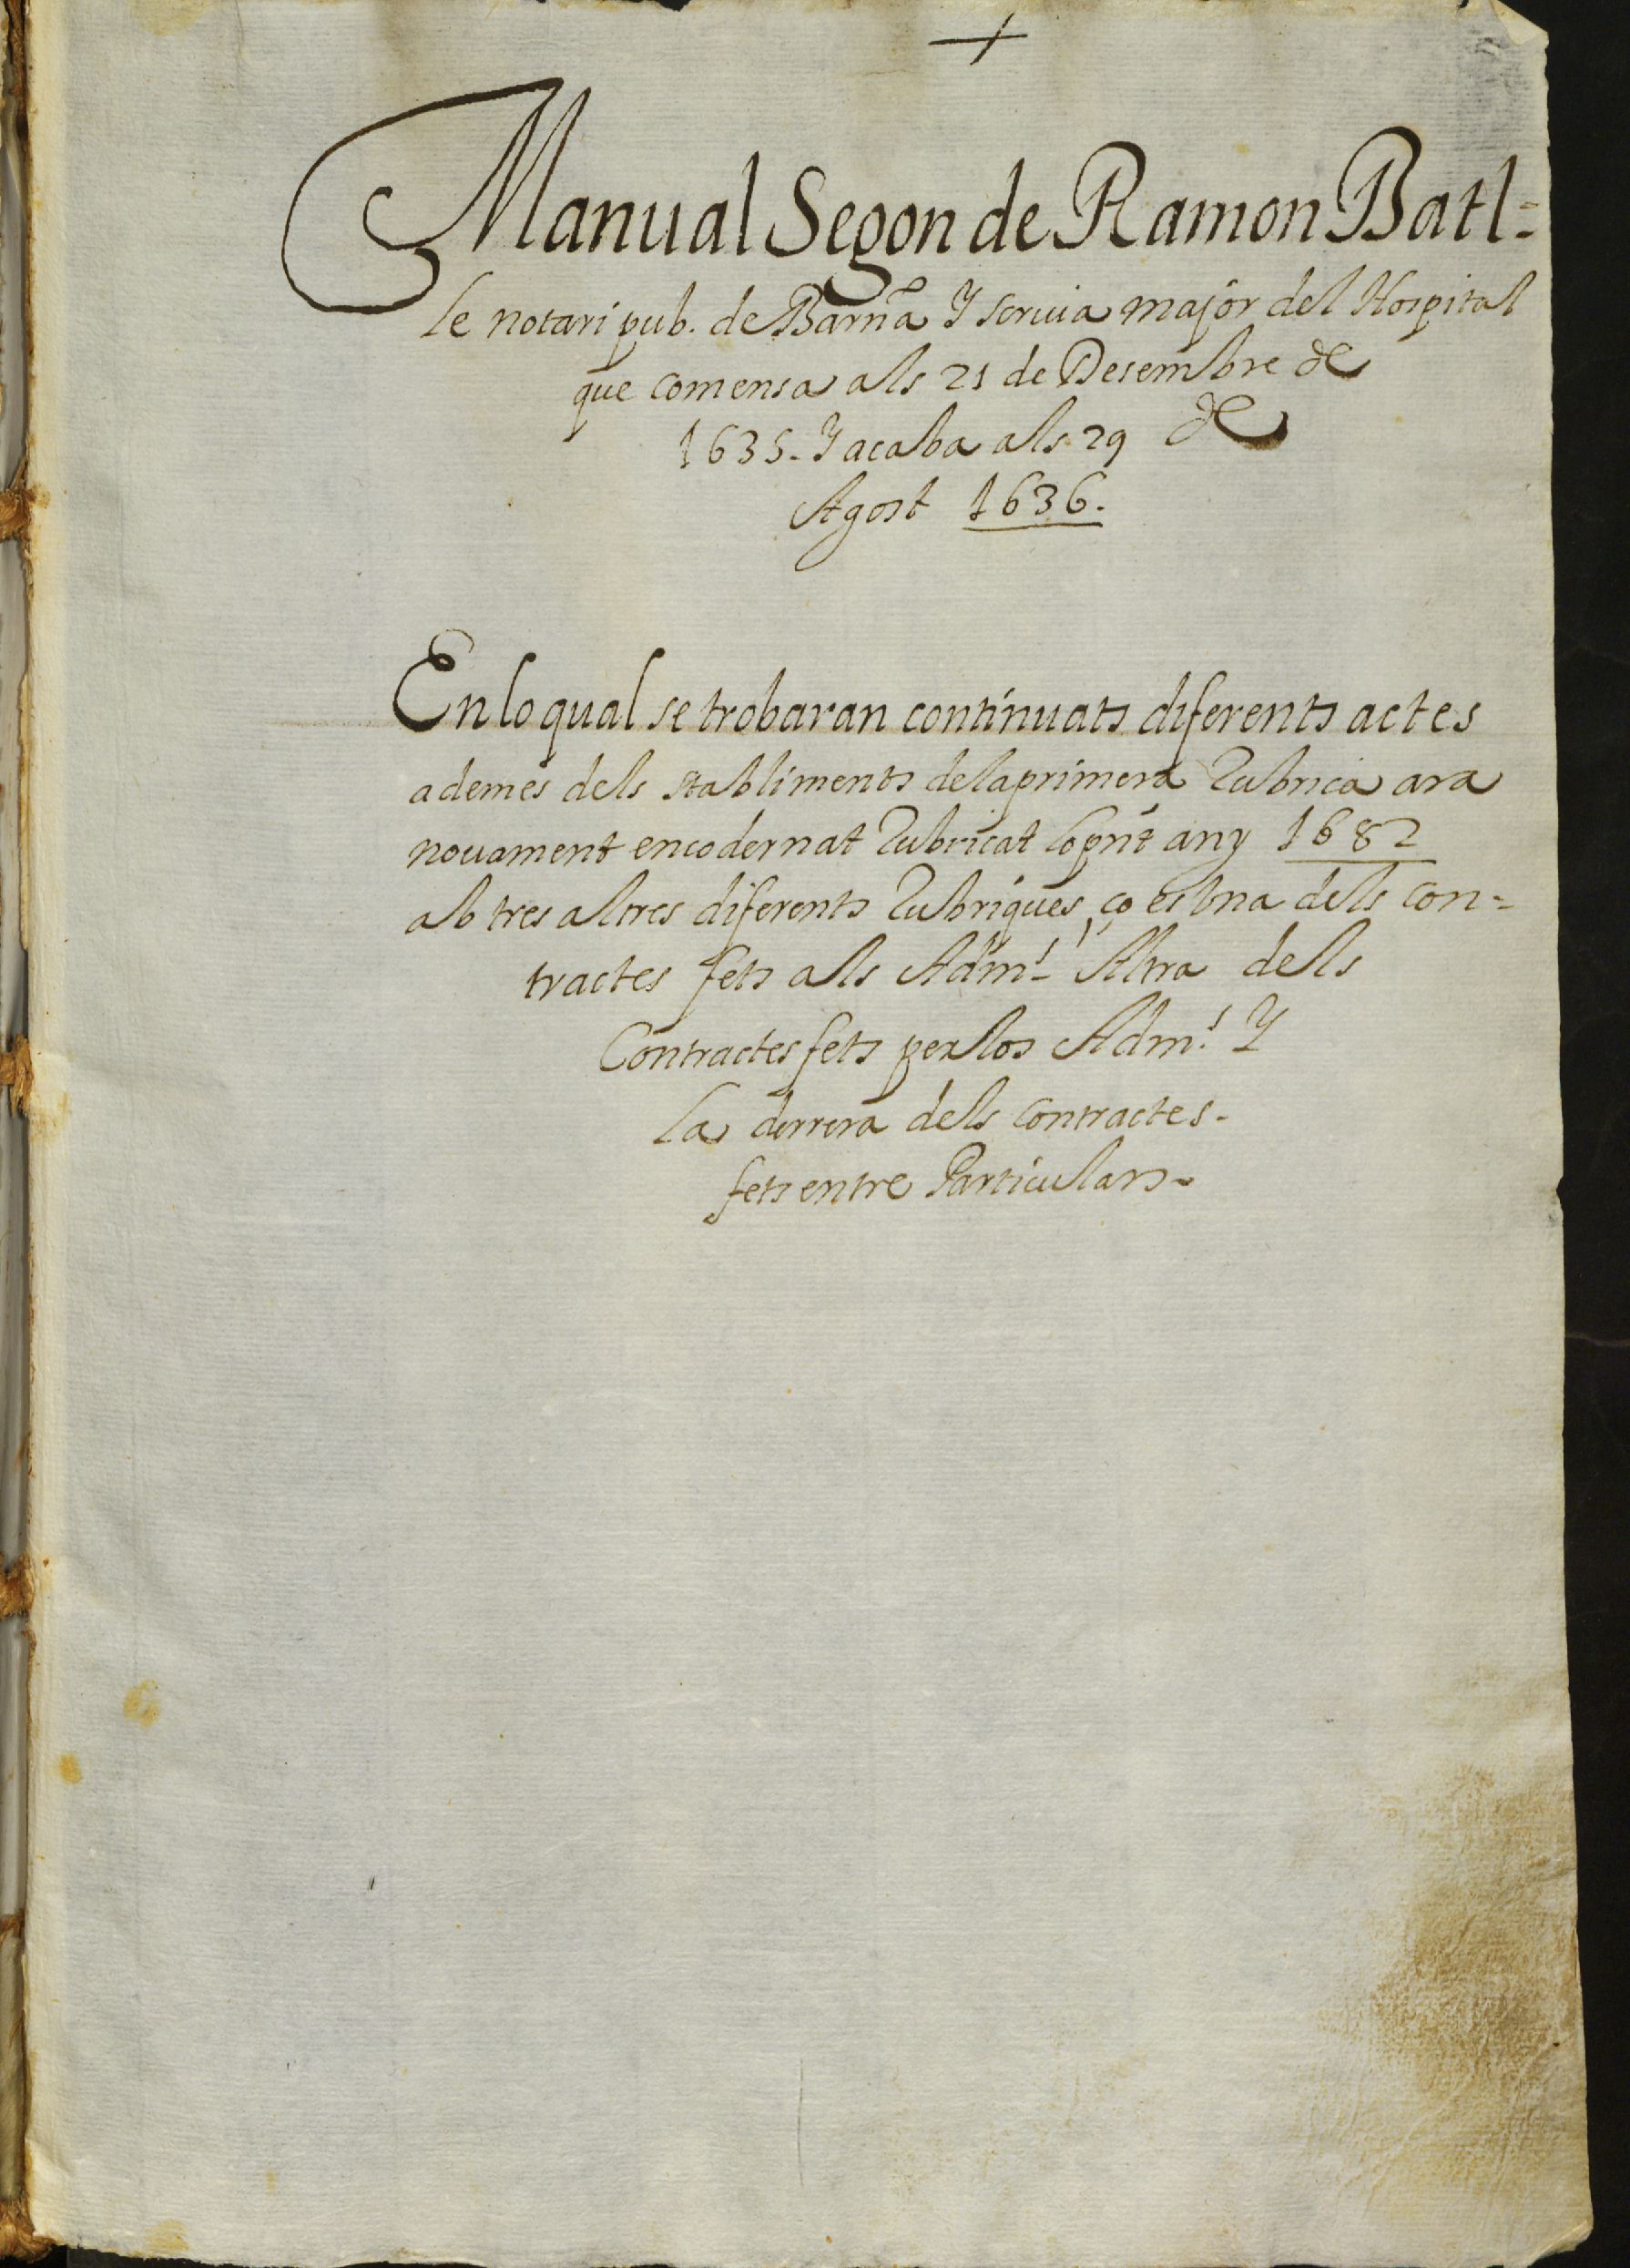 +
Manual Segon de Ramon Batl=
le notari pub. de Barña Y scriuia major del Hospital
que comensa als 21 de Desembre de
1635. Y acaba als 29 de
Agost 1636.
En lo qual se trobaran continuats diferents actes
ademes dels stabliments de la primera Rubrica ara
nouament encodernat Rubricat lo pnt any 1682
ab tres altres diferents Rubriques, ço es Una dels con=
tractes fets als Admrs. Altra dels
Contractes fets per los Admrs. Y
la derrera dels contractes.
fets entre Particulars.